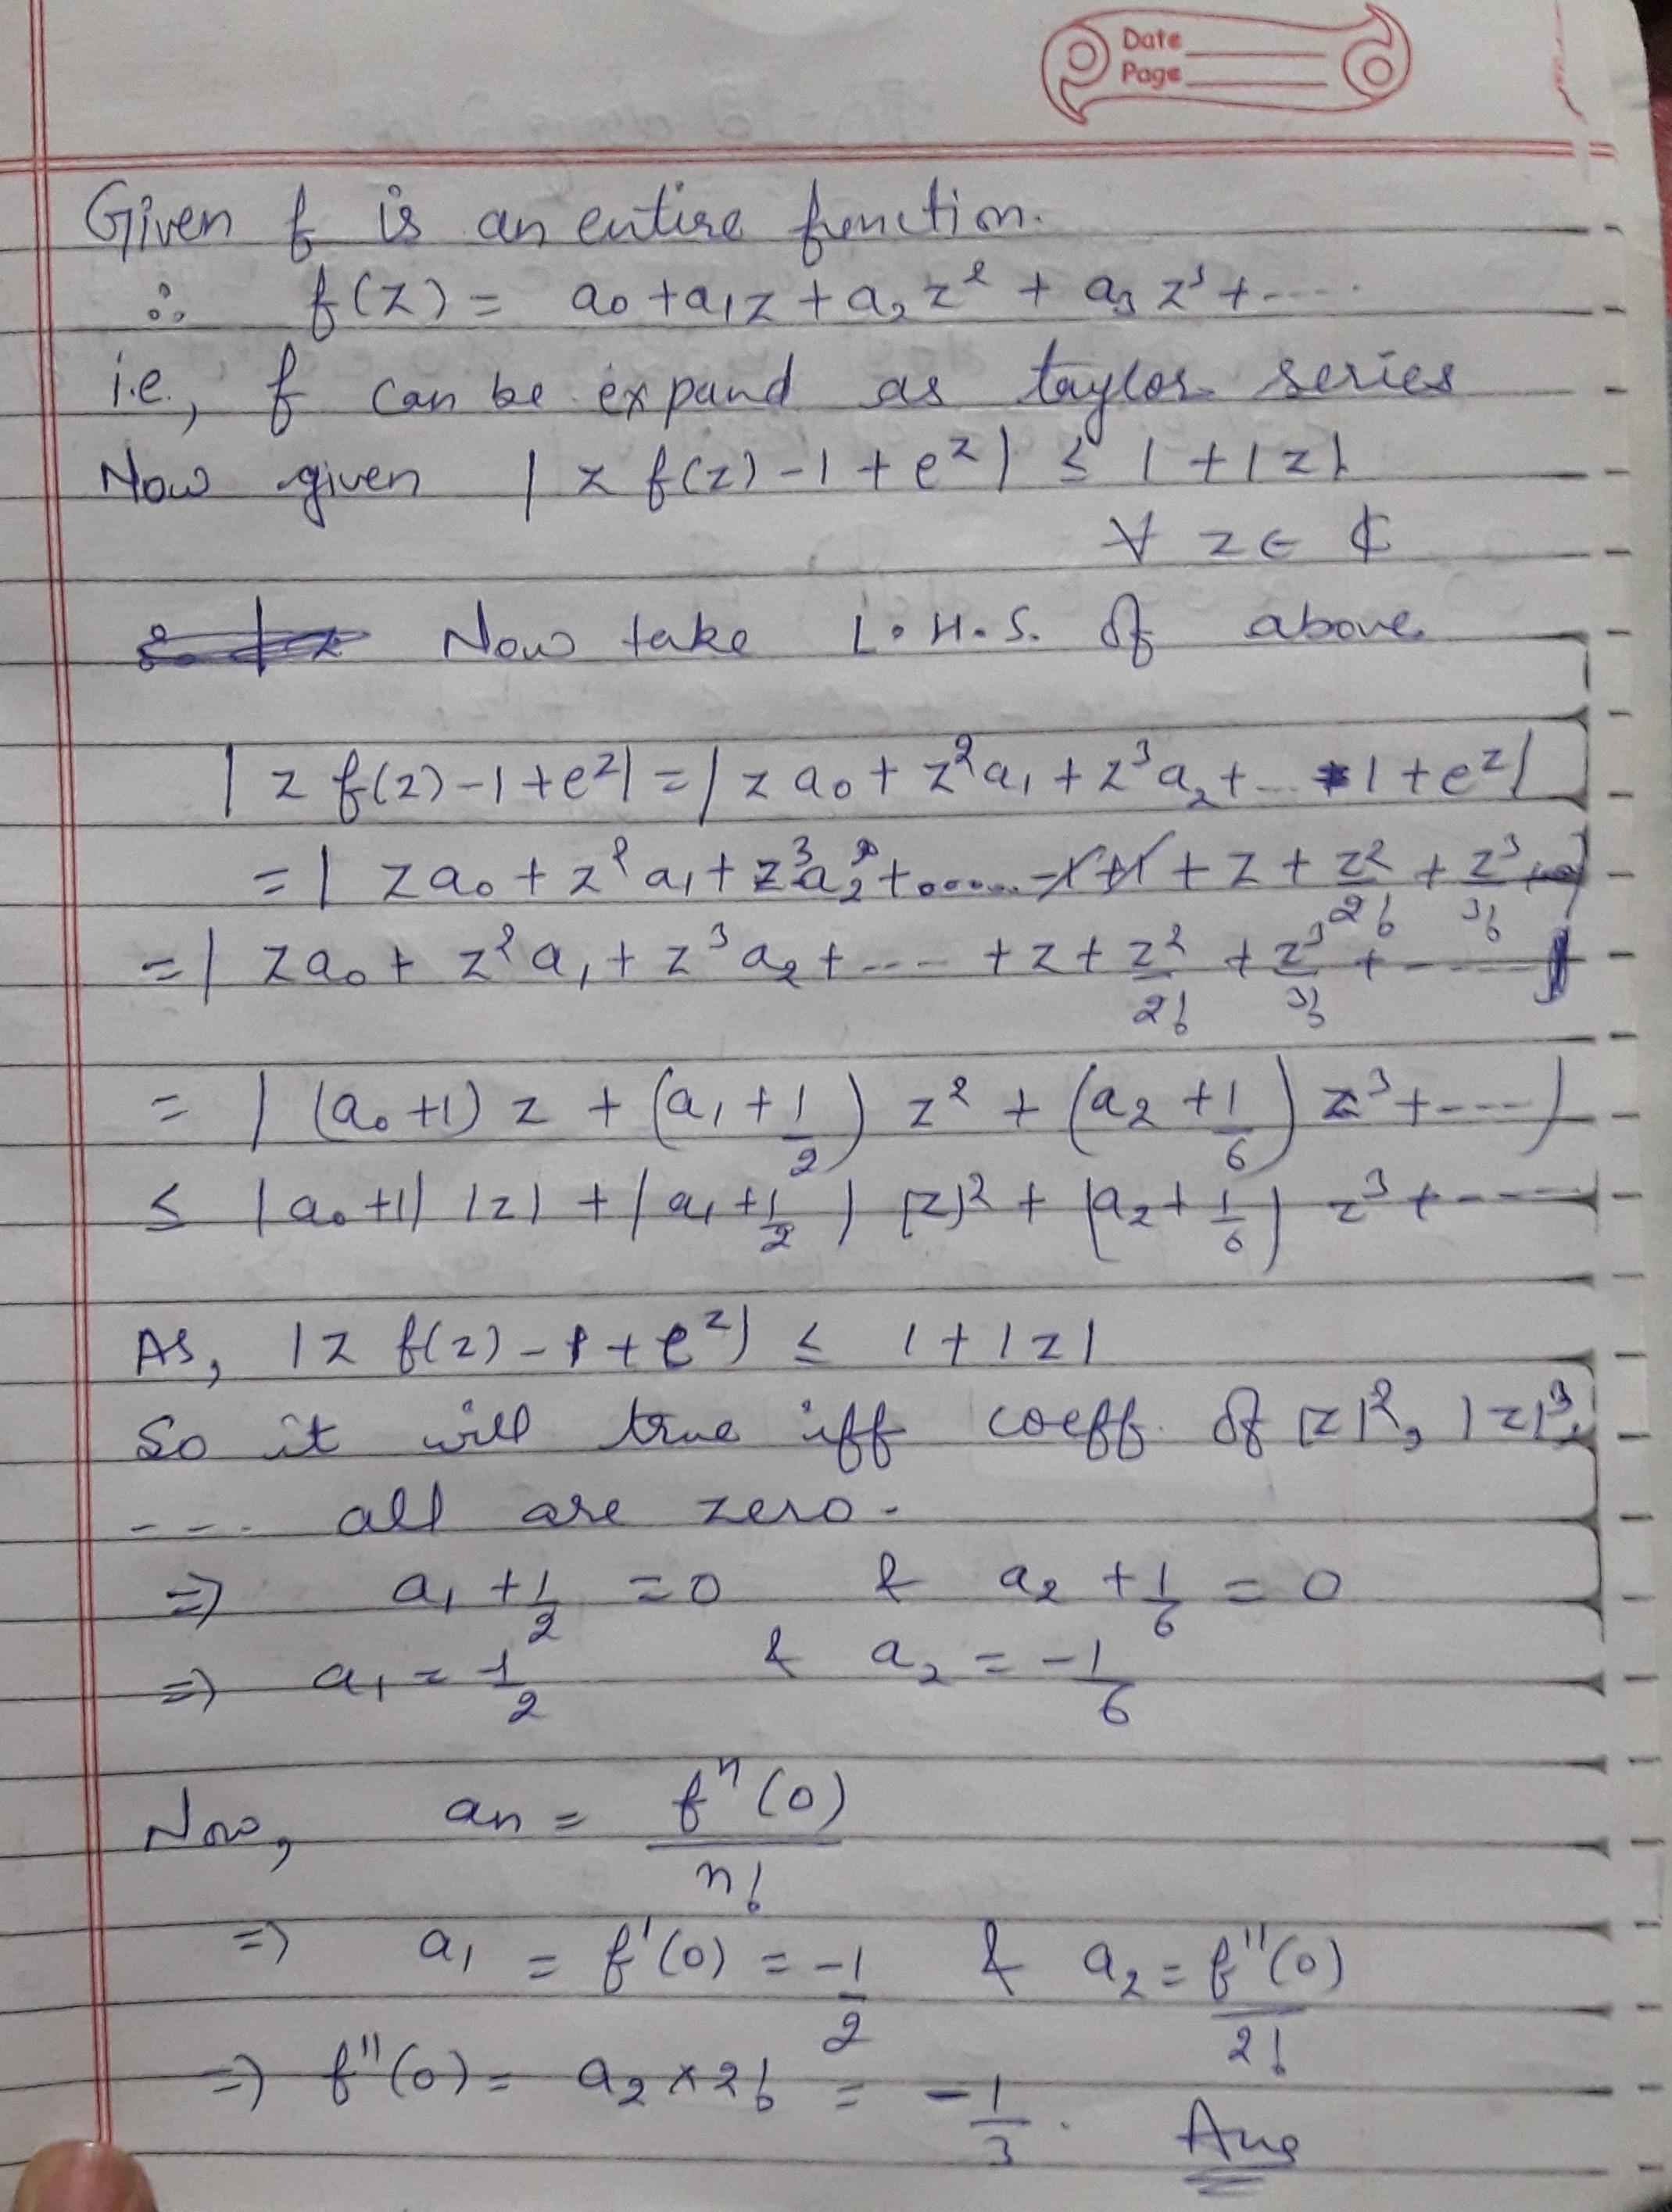 Date
Page
Given f is an entire function.
∴ f(z) = a₀ + a₁z + a₂z² + a₃z³ + .....
i.e., f can be expand as taylor series
Now given |z f(z) - 1 + e^z| ≤ 1 + |z|
∀ z ∈ ℂ
Now take L.H.S. of above
|z f(z) - 1 + e^z| = |z a₀ + z²a₁ + z³a₂ + ... - 1 + e^z|
= | za₀ + z²a₁ + z³a₂ + ...... - 1 + 1 + z + z²/2! + z³/3! + ...|
= | za₀ + z²a₁ + z³a₂ + .... + z + z²/2! + z³/3! + ......|
= | (a₀+1) z + (a₁ + 1/2) z² + (a₂ + 1/6) z³ + ....|
≤ |a₀+1| |z| + |a₁ + 1/2| |z|² + |a₂ + 1/6| z³ + .....
As, |z f(z) - 1 + e^z| ≤ 1 + |z|
So it will true iff coeff. of |z|², |z|³,
.... all are zero.
⇒ a₁ + 1/2 = 0 & a₂ + 1/6 = 0
⇒ a₁ = -1/2 & a₂ = -1/6
Now, an = fⁿ(0)/n!
⇒ a₁ = f'(0) = -1/2 & a₂ = f''(0)/2!
⇒ f''(0) = a₂ × 2! = -1/3. Ans